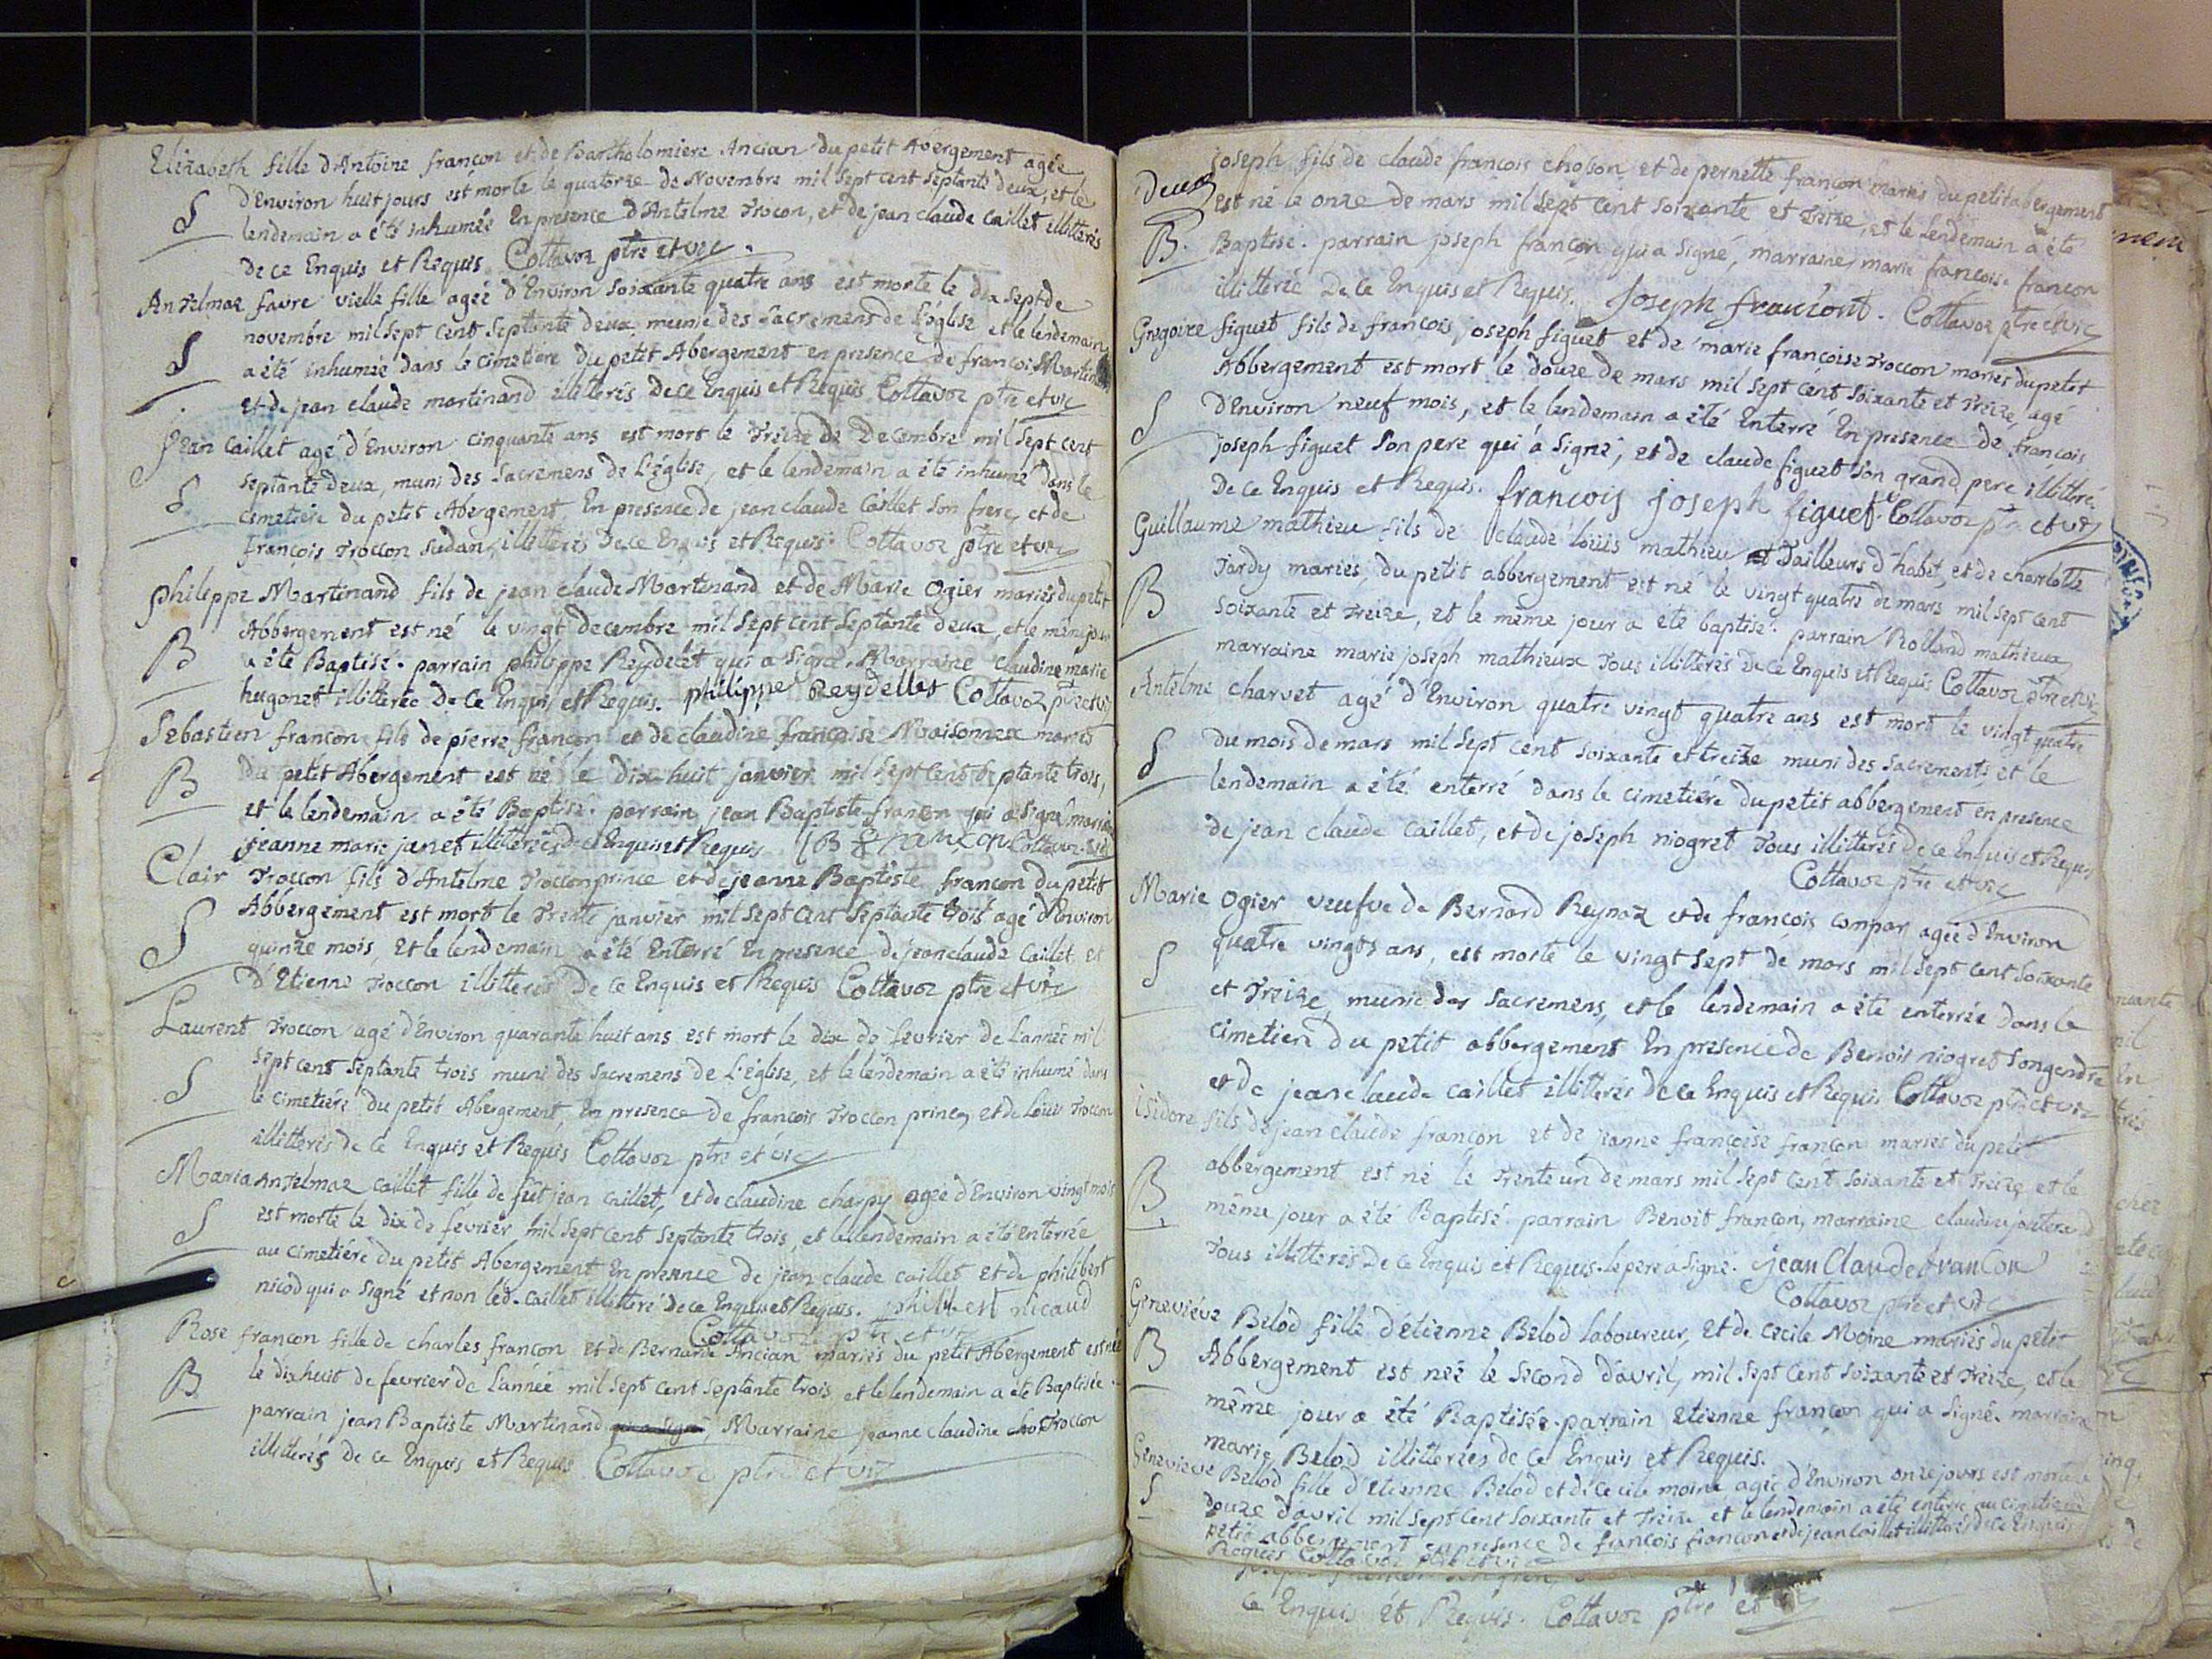 Elizabeth fille d'Antoine françon et de Bartholomiere Ancian du petit Abergement agée
d'Environ huit jours est morte le quatorze de Novembre mil sept cent septante deux, et le
S
lendemain a été inhumée En presence d'Antelme Trocon, et de jean claude Caillet illitterés
de ce Enquis et Requis Collavoz ptre et vic.
Antelmaz favre vielle fille agée d'Environ soixante quatre ans est morte le dix sept de
novembre mil sept cent septante deux munie des Sacremens de L'église et le lendemain
S
a été inhumée dans le cimetiére du petit Abergement en presence de françois Martinand
et de jean claude martinand illitterés de ce Enquis et Requis Collavoz ptre et vic
Jean Caillet agé d'Environ cinquante ans est mort le Treize de Decembre mil sept cent
septante deux, muni des Sacremens de L'église, et le lendemain a été inhumé dans le
S
cimetiére du petit Abergement En presence de jean claude Caillet son frere, et de
françois Troccon sudan, illitterés de ce Enquis et Requis Collavoz ptre et vic
philippe Martinand fils de jean claude Martinand et de Marie Ogier mariés du petit
Abbergement est né le vingt decembre mil sept cent septante deux, et le même jour
B
a été Baptisé. parrain philippe Reydelet qui a signé. Marraine claudine marie
hugonet illitterée de ce Enquis et Requis. philippe Reydellet Collavoz ptre et vic
Sebastien françon fils de pierre françon et de claudine françoise Maisonnex mariés
du petit Abergement est né le dix huit janvier mil sept cent septante trois,
B
et le lendemain a été Baptisé. parrain jean Baptiste françon qui a signé marraine
jeanne marie janet illitterée de ce Enquis et Requis JB françon Collavoz
Clair Troccon fils d'Antelme Troccon prince et de jeanne Baptiste françon du petit
Abbergement est mort le Trente janvier mil sept cent Septante trois agé d'Environ
S
quinze mois, et le lendemain a été Enterré En presence de jean claude Caillet et
d'Etienne Troccon illitterés de ce Enquis et Requis Collavoz ptre et vic
Laurent Troccon agé d'Environ quarante huit ans est mort le dix de fevrier de L'année mil
sept cent septante trois muni des Sacremens de L'église, et le lendemain a été inhumé dans
S
le cimetiére du petit Abergement, En presence de françois Troccon prince, et de Loüis Troccon
illitterés de ce Enquis et Requis Collavoz ptre et vic
Maria Antelmaz Caillet fille de fût jean Caillet, et de claudine charpy agée d'Environ vingt mois
est morte le dix de fevrier mil sept cent septante trois, et le lendemain a été enterrée
S
au cimetiére du petit Abergement En presence de jean claude caillet et de philibert
nicod qui a signé et non led. Caillet illitteré de ce Enquis et Requis. philibert nicaud
Collavoz ptre et vic
Rose françon fille de charles françon et de Bernarde Ancian mariés du petit Abergement est née
le dix huit de fevrier de L'année mil sept cent septante trois et le lendemain a été Baptisée.
B
parrain jean Baptiste Martinand qui a signé, Marraine jeanne claudine Troccon
illitterés de ce Enquis et Requis Collavoz ptre et vic
joseph fils de claude françois choson et de pernette françon mariés du petit abergement
deux
est né le onze de mars mil sept cent soixante et treize, et le lendemain a été
B.
Baptisé. parrain joseph françon qui a signé, marraine marie françoise françon
illitterée De ce Enquis et Requis. Joseph francont. Collavoz ptre et vic
Gregoire figuet fils de françois joseph figuet et de marie françoise Troccon mariés du petit
Abbergement est mort le douze de mars mil sept cent soixante et treize, agé
S
d'Environ neuf mois, et le lendemain a été Enterré En presence de françois
joseph figuet son pere qui a signé, et de claude figuet son grand pere illitteré
De ce Enquis et Requis. francois joseph figuet. Collavoz ptre et vic
Guillaume mathieu fils de claude loüis mathieu Tailleurs d'habit, et de charlotte
Tardy mariés, du petit abbergement est né le vingt quatre de mars mil sept cent
B
soixante et Treize, et le même jour a été baptisé. parrain Rolland mathieux
marraine marie joseph mathieux Tous illitterés de ce Enquis et Requis Collavoz ptre et vic
Antelme charvet agé d'Environ quatre vingt quatre ans est mort le vingt quatre
du mois de mars mil sept cent soixante et treize muni des Sacrements et le
S
lendemain a été enterré dans le cimetiére du petit abbergement en presence
de jean claude caillet, et de joseph niogret Tous illitterés de ce Enquis et Requis
Collavoz ptre et vic
Marie Ogier veufve de Bernard Reynaz et de françois compan agée d'Environ
quatre vingts ans, est morte le vingt sept de mars mil sept cent soixante
S
et Treize, munie des Sacremens, et le lendemain a été enterrée dans le
cimetiere du petit abbergement En presence de Benoit niogret son gendre
et de jean claude caillet illitterés de ce Enquis et Requis Collavoz ptre et vic
isidore fils de jean claude françon et de jeanne françoise françon mariés du petit
abbergement est né le trente un de mars mil sept cent soixante et Treize et le
B
même jour a été Baptisé. parrain Benoit françon, marraine claudine
Tous illitterés de ce Enquis et Requis. le pere a signé. jean Claude francon
Collavoz ptre et vic
Geneviéve Belod fille d'étienne Belod laboureur, et de cecile Moine mariés du petit
B
Abbergement est née le second d'avril, mil sept cent soixante et Treize, et le
même jour a été Baptisée. parrain etienne françon qui a signé. marraine
marie Belod illitterées de ce Enquis et Requis.
Genevieve Belod fille d'etienne Belod et de cecile moine agée d'Environ onze jours est morte le
S
douze d'avril mil sept cent soixante et Treize et le lendemain a été enterre au cimetiere du
petit abbergement en presence de françois françon et de jean caillet illitterés de ce Enquis
Requis Collavoz ptre et vic
ce Enquis et Requis. Collavoz ptre et